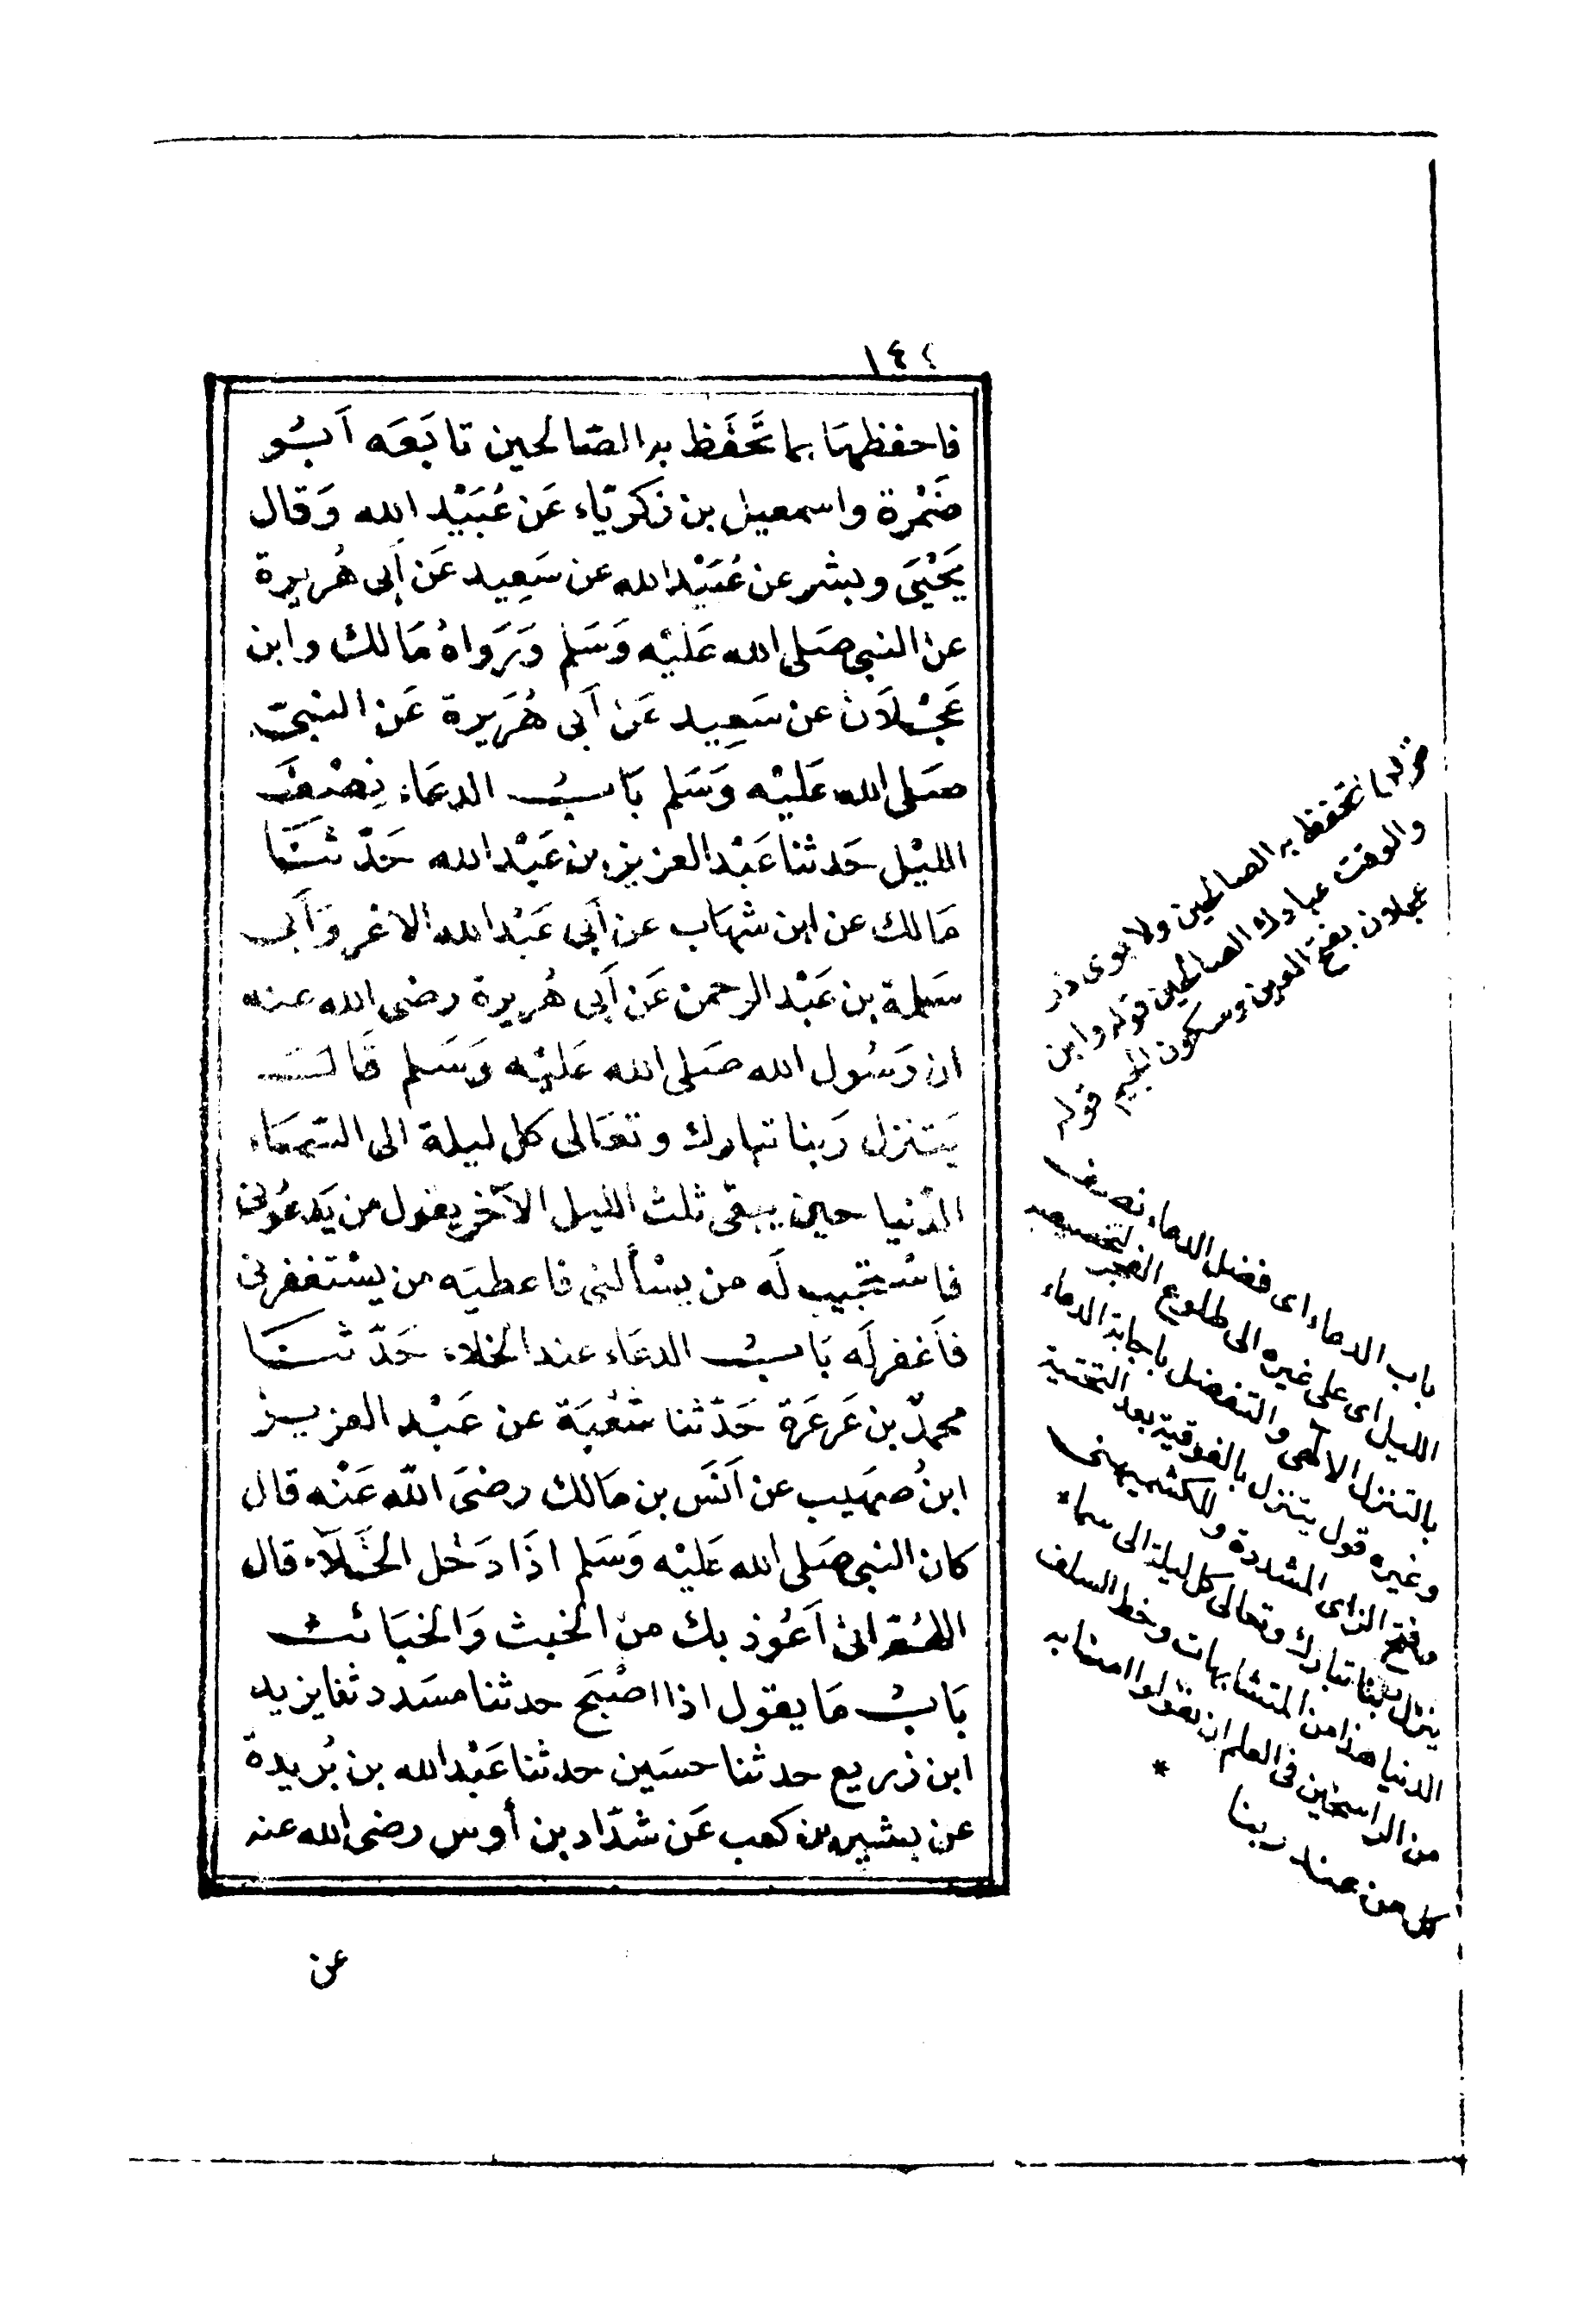 ١٤٤
فاحفظهَا بما تَحفَظ به الصّالحين تابَعَه اَبُو
ضَمْرة واسمعيل بن زكريّاء عَن عُبَيْد الله وَقال
يَحْيَى وبشر عن عُبَيْد الله عن سَعِيد عَن أَبى هُريرة
عن النبى صَلى الله عَليْه وَسَلم وَرَوَاهُ مَالك وابن
عَجْلَان عن سَعِيد عَن أَبى هُرَيرة عَن النبىّ
صَلى الله عَليْه وَسَلم بَابُ الدعَاء نِصْفَ
الليْل حَدثنا عَبْد العزيز بن عَبْد الله حَدّثنَا
مَالك عن ابن شهَاب عن أَبى عَبْد الله الاغر وَأَبى
سَلمة بن عَبْد الرحمن عَن أَبى هُريرة رضى الله عنه
ان رَسُول الله صَلى الله عَليْه وَسَلم قَالَ
يَتنزل رَبنا تبارك وتعَالى كل ليلة الى السّمَاء
الدّنيا حين يبقى ثلث الليل الآخر يقول من يَدعُونى
فاسْتجيب لَه من يسْألنى فاعطيَه من يسْتغفرنى
فاَغفرلَه بَابُ الدعَاء عند الخلاء حَدّثنَا
محمدّ بن عَرعَرَة حَدّثنا شُعْبَة عن عَبْد العزيز
ابنُ صهَيب عن اَنَس بن مَالك رضىَ الله عَنْه قال
كان النبى صَلى الله عَليْه وَسَلم اذَا دَخل الخَلآء قال
اللهُمّ انى اَعُوذ بك من الخبث وَالخبَائث
بَابُ مَا يقول اذا اصْبَح حدثنا مسَدد ثنا يزيد
ابن زريع حدثنا حسَين حدثنا عَبْد الله بن بُريدة
عن بشير بن كعب عَن شدّاد بن أوس رضى الله عنه
عن
تحفظ به الصالحين ولابوى ذر
والوقت عبادك الصالحين قوله وابن
عجلان بفتح العين وسكون الجيم قوله
باب الدعاء اى فضل الدعاء نصف
الليل اى على غيره الى طلوع الفجر لتخصيصه
بالتنزل الالهى والتفضل باجابة الدعاء
وغيره قول يتنزل بالفوقية بعد التحتية
وفتح الزاى المشددة وللكشميهنى
ينزل ربنا تبارك وتعالى كل ليلة الى سماء
الدنيا هذا من المتشابهات وخط السلف
من الراسخين فى العلم ان يقولوا امنا به
كل من عند ربنا *